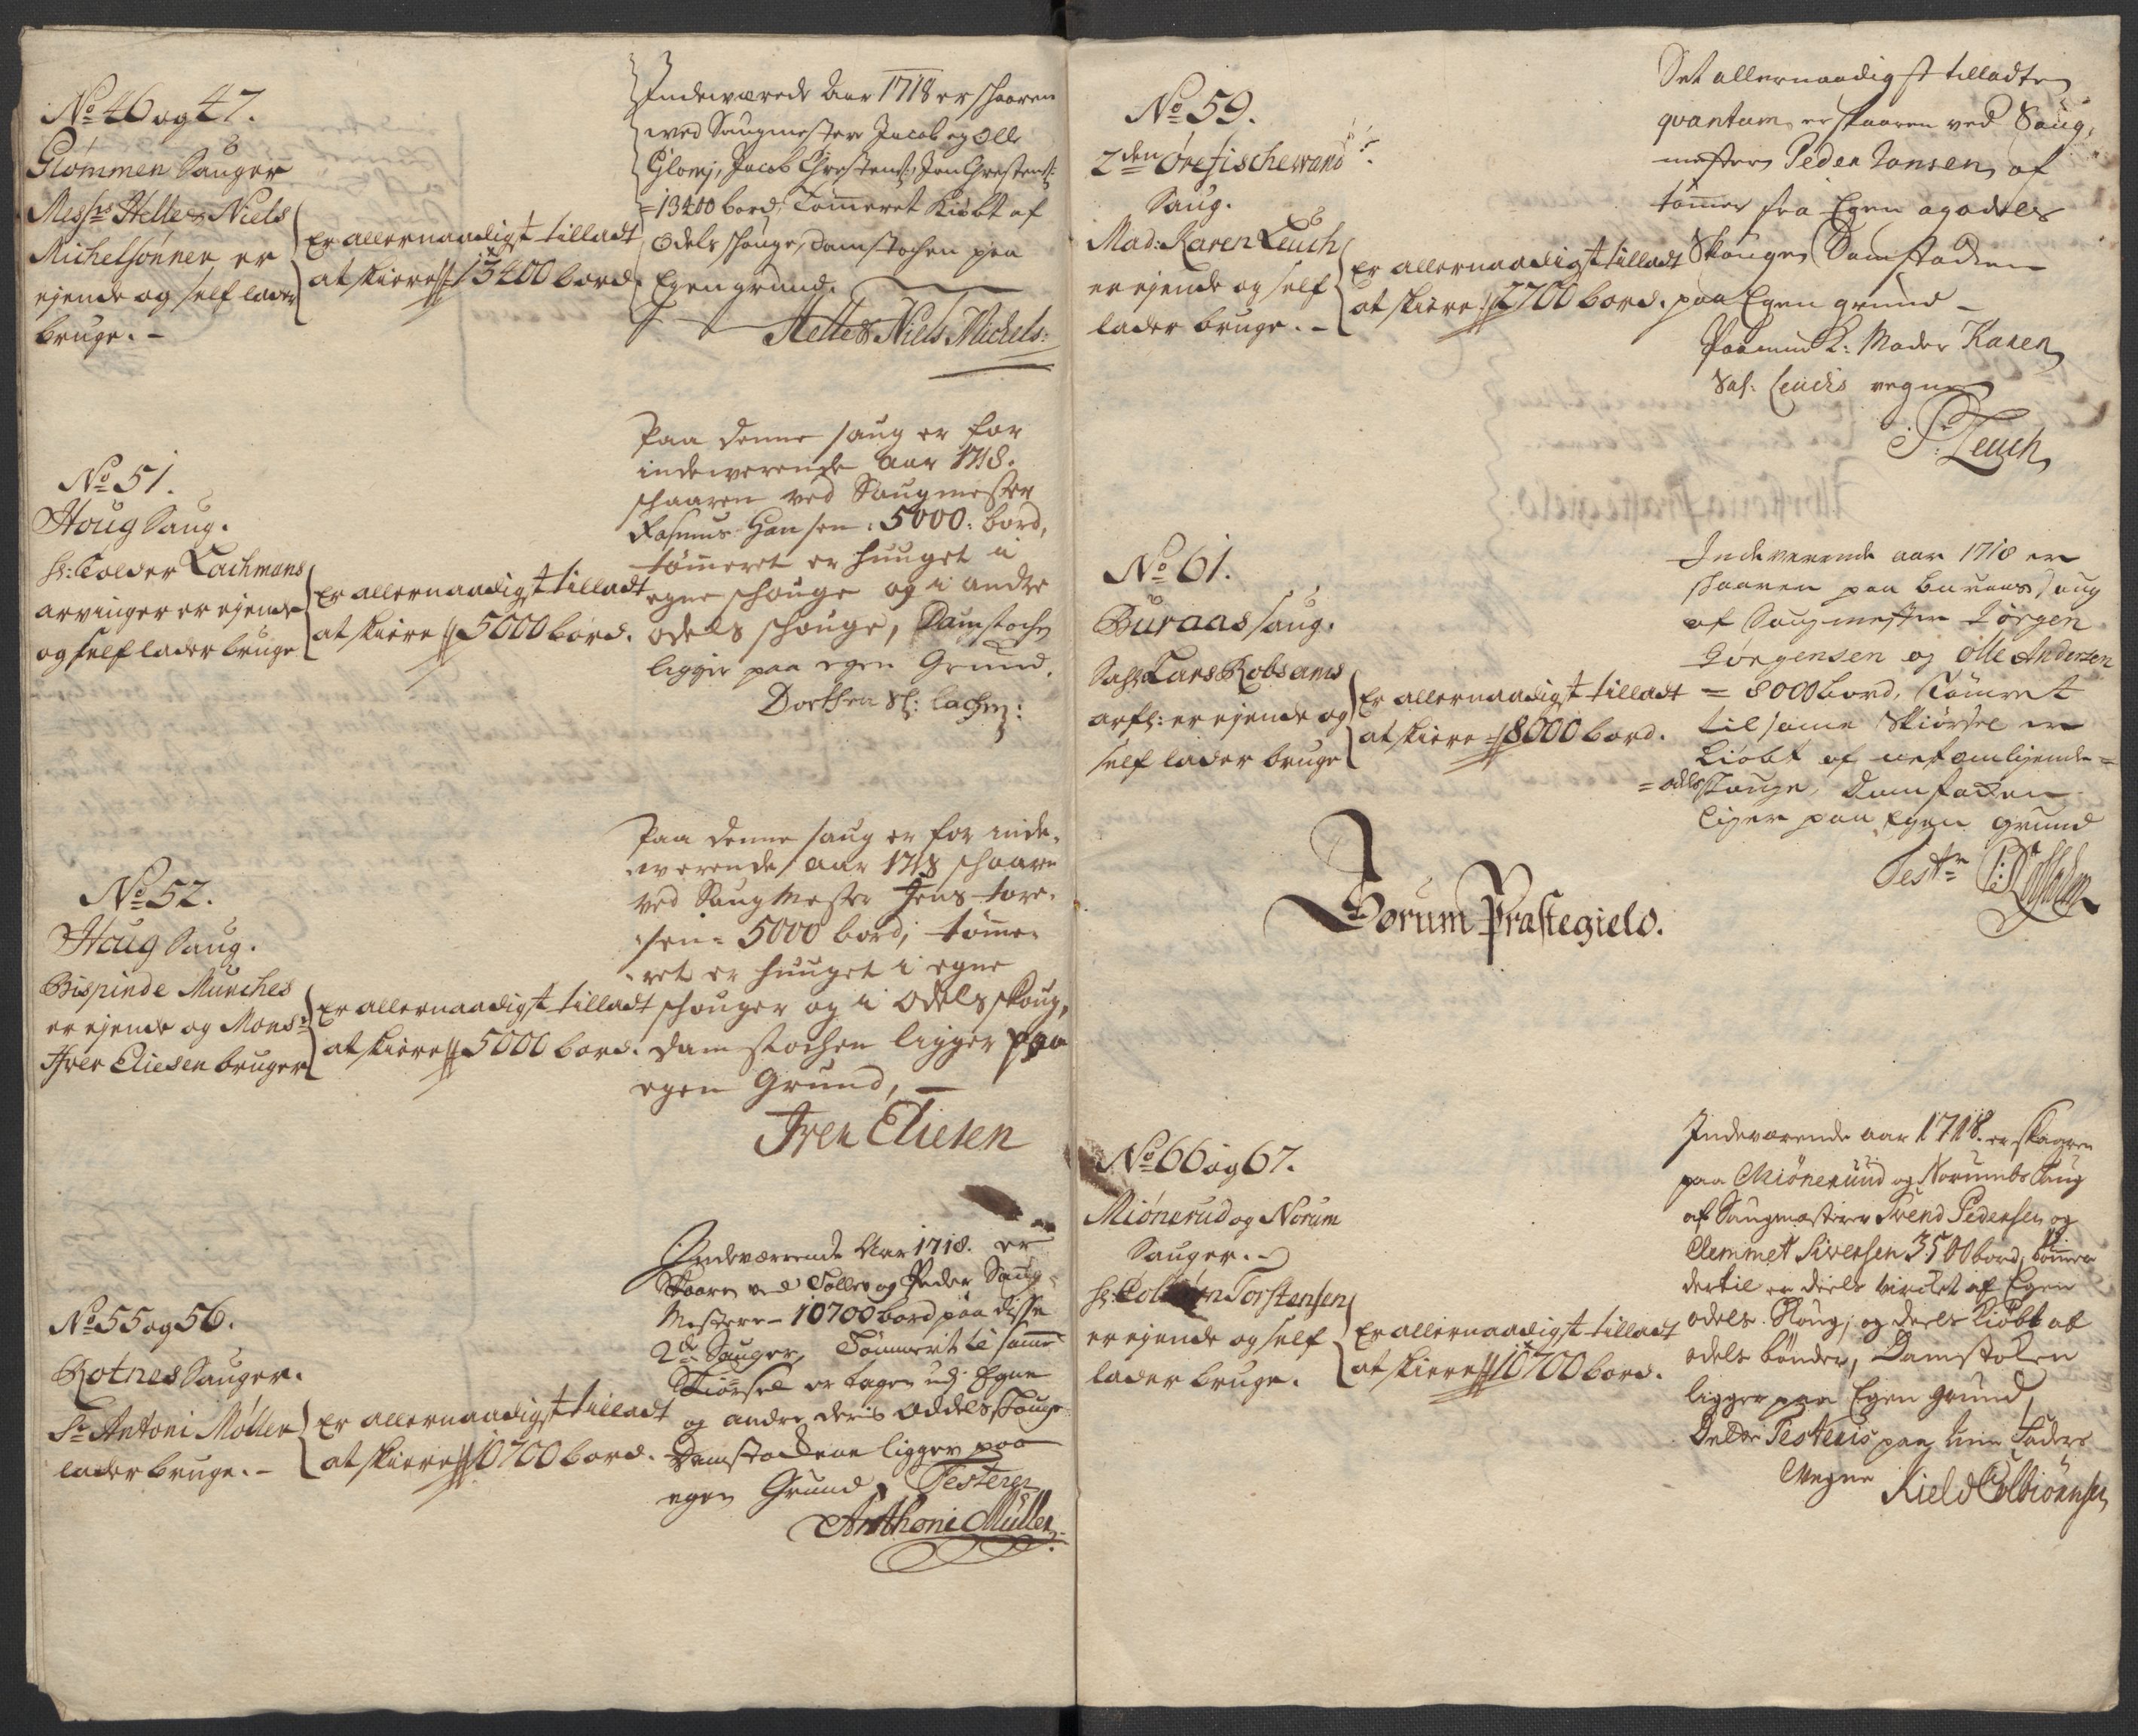 No 46 og 47.
Glommen Sauger
Messrs Helle & Niels
Michelsønner er
ejende og self lader
bruge. -
Er allernaadigst tilladt
at skiere 13400 bord.
Indeværende Aar 1718 er schaaren
ved Saugmestere Jacob og Olle
Glomj, Jacob Chrestens:, Jon Chrestens:
= 13400 bord, Tømmeret Kiøbt af
Odels schouge, Damstochen paa
Egen grund.
Helle & Niels Michels:
No 51.
Houg Saug.
Sl: Colder Lachmans
arvinger er ejende
og self lader bruge
Er allernaadigst tilladt
at skiere 5000 bord.
Paa denne saug er for
indeverende aar 1718.
schaaren ved Saugmester
Rasmus Hansen: 5000: bord,
tømeret er huuget i
egne schouge og i andre
odels schouge, Damstochen
ligger paa egen Grund.
Dorthea Sl: Lachm:
No 52.
Houg Saug.
Bispinde Munches
er ejende og Monsr
Iver Eliesen bruger
Er allernaadigst tilladt
at skiere 5000 bord.
Paa denne saug er for inde-
werende aar 1718 schaaren
ved Saug Mester Jens Tore-
sen = 5000 bord; tømme-
ret er huuget i egne
schouger og i Odels skoug,
damstochen ligger paa
egen Grund, -
Iver Eliesen
No 55 og 56.
Rotnes Sauger.
Sr Antoni Møller
lader bruge. -
Er allernaadigst tilladt
at skiere 10700 bord.
Indeværrende Aar 1718. er
Skaaren ved Tollev og Peder Saug-
Mestere - 10700 bord paa disse
2de Sauger, Tømmerit te samme
Skiørsel er tagen udj Egne
og andre deris Oddels Skouge
Damstockene ligger paa
egen Grund, Testerer
Anthoni Müller
No 59.
2den Ørefischewand
Saug.
Mad: Karen Leuch
er ejende og self
lader bruge. -
Er allernaadigst tilladt
at skiere 2700 bord.
Det allernaadigst tilladte
qvantum er skaaren ved Saug-
mester Peder Jansen, af
tømmer fra Egen og odels
Skouge, Damstocken
paa Egen grund -
Paa min K: Moder Karen
Sal: Leuchs vegne
P: Leuch
No 61.
Buraas saug.
Sahl: Lars Robsams
arfv: er ejende og
self lader bruge
Er allernaadigst tilladt
at skiere 8000 bord.
Indeverende aar 1718 er
skaaren paa Buraas Saug
af Saugmester Jørgen
Jørgensen og Olle Andersen
= 8000 bord, Tømret
til same Skiørsel er
Kiøbt af
= odels Skouge, Damstocken
liger paa Egen grund
Test:
Sorum Præstegield.
No 66 og 67.
Miønerud og Norum
Sauger. -
Sl: Torstensen
er ejende og self
lader bruge.
Er allernaadigst tilladt
at skiere 10700 bord.
Indeværende aar 1718. er skaaren
paa Miønerüud og Norumbs Saug
af Saugmestere Svend Pedersen og
Clemmet Siversen 3500 bord, tømmer
dertil er deels virchet af Egen
odels Skoug, og deels Kiøbt af
odels bønder, Damstoken
ligger paa Egen grund,
Dette Testeris paa min Faders
Wegne Kield Colbiørnsen